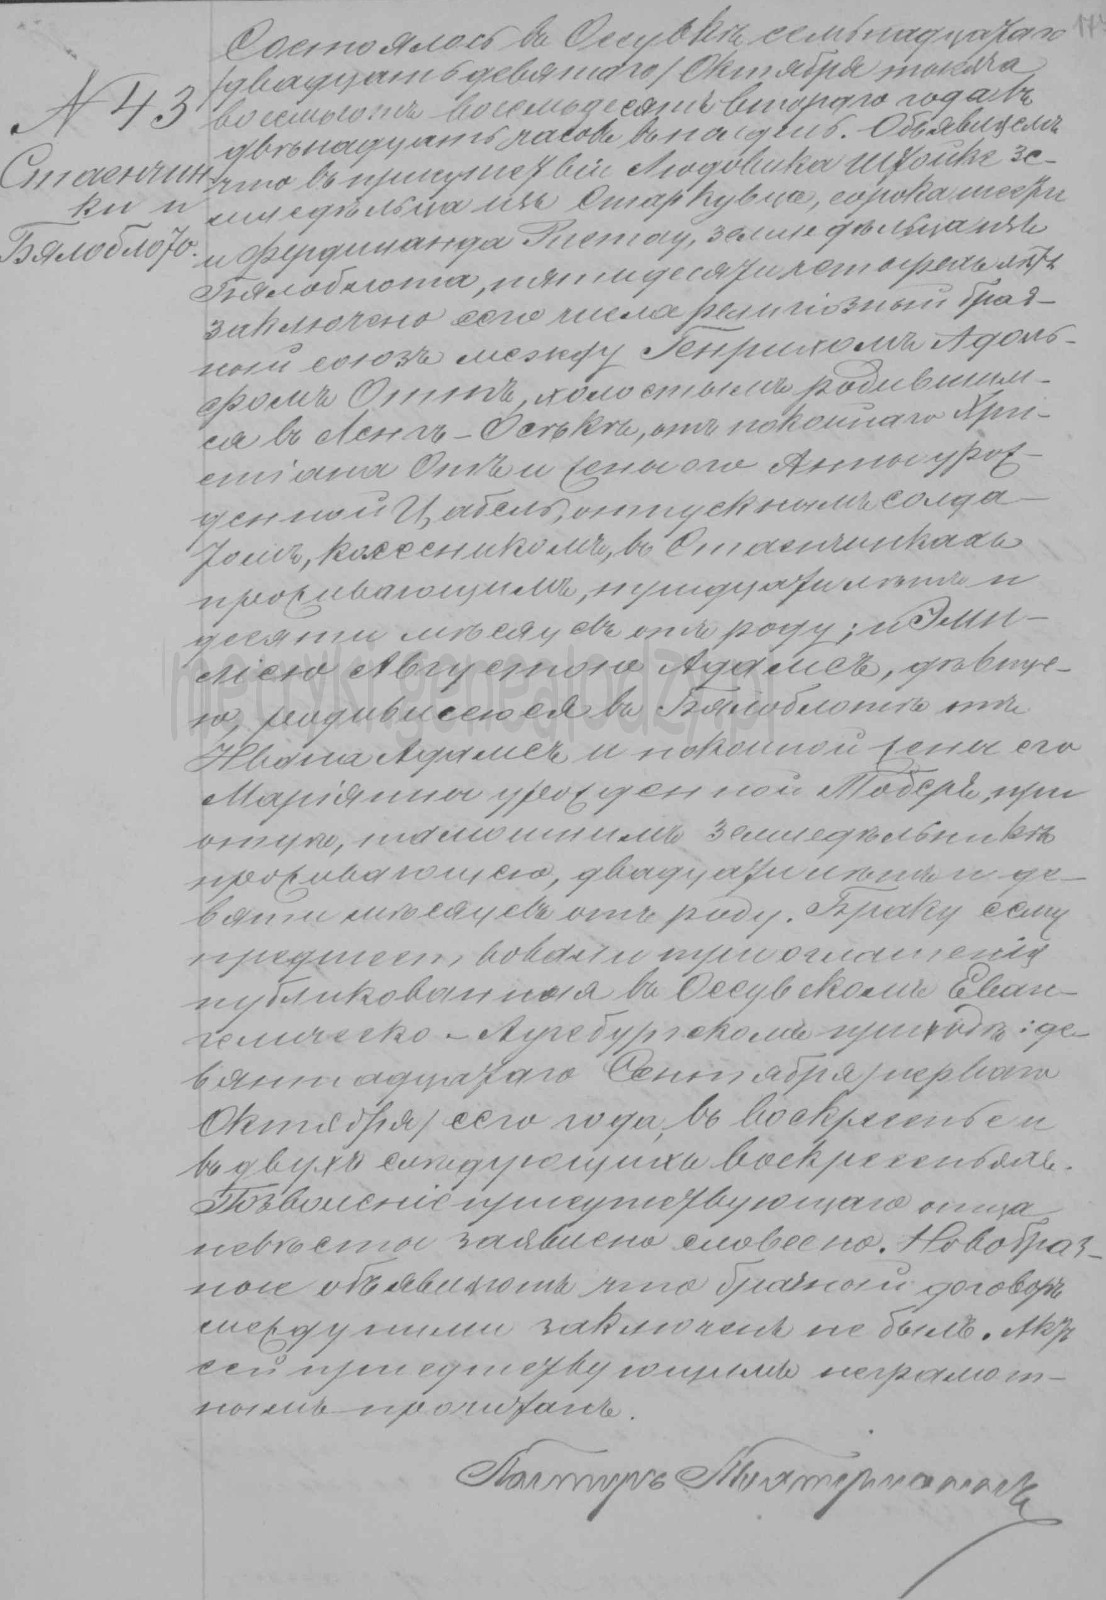 174
№ 43
Стаенчин-
ки и
Бялоблото.
Состоялось въ Оссувкѣ семьнадцатаго
/двадцать девятаго/ Октября тысяча
восемьсотъ восемьдесятъ втораго года въ
двѣнадцать часовъ въ полдень. Объявляемъ
что въ присутствіи Людовика Штойке зе-
мледѣльца изъ Старкувца, сорока шести
и Фердинанда Ристау, земледѣльца изъ
Бялоблота, пятидесяти четырехъ лѣтъ
заключено сего числа религіозный брач-
ный союзъ между Генрихомъ Адоль-
фомъ Оттъ, холостымъ родившим-
ся въ Ленгъ-Осѣкѣ, отъ покойнаго Хри-
стіана Отъ и жены его Анны урож-
денной Цабель, отпускнымъ солда-
томъ, колесникомъ, въ Стаенчинкахъ
проживающимъ, тридцати лѣтъ и
десяти мѣсяцевъ отъ роду; и Эми-
ліею Августою Адамсъ, дѣвице-
ю, родившеюся въ Бялоблотѣ отъ
Ивана Адамсъ и покойной жены его
Маріанны урожденной Тоберъ, при
отцѣ, тамошнимъ земледѣльникѣ
проживающею, двадцати лѣтъ и де-
вяти мѣсяцевъ отъ роду. Браку сему
предшествовали три оглашенія
публикованныя въ Оссувскомъ Еван-
гелическо-Аугсбургскомъ приходѣ: де-
вятнадцатаго Сентября /перваго
Октября/ сего года, въ воскресенье и
въ двухъ слѣдующихъ воскресеньяхъ.
Позволеніе присутствующаго отца
невѣсты заявлено словесно. Новобрач-
ные объявляютъ что брачный договоръ
между ними заключенъ не былъ. Актъ
сей присутствующимъ неграмот-
нымъ прочитанъ.
Пасторъ
metryki.genealodzy.pl